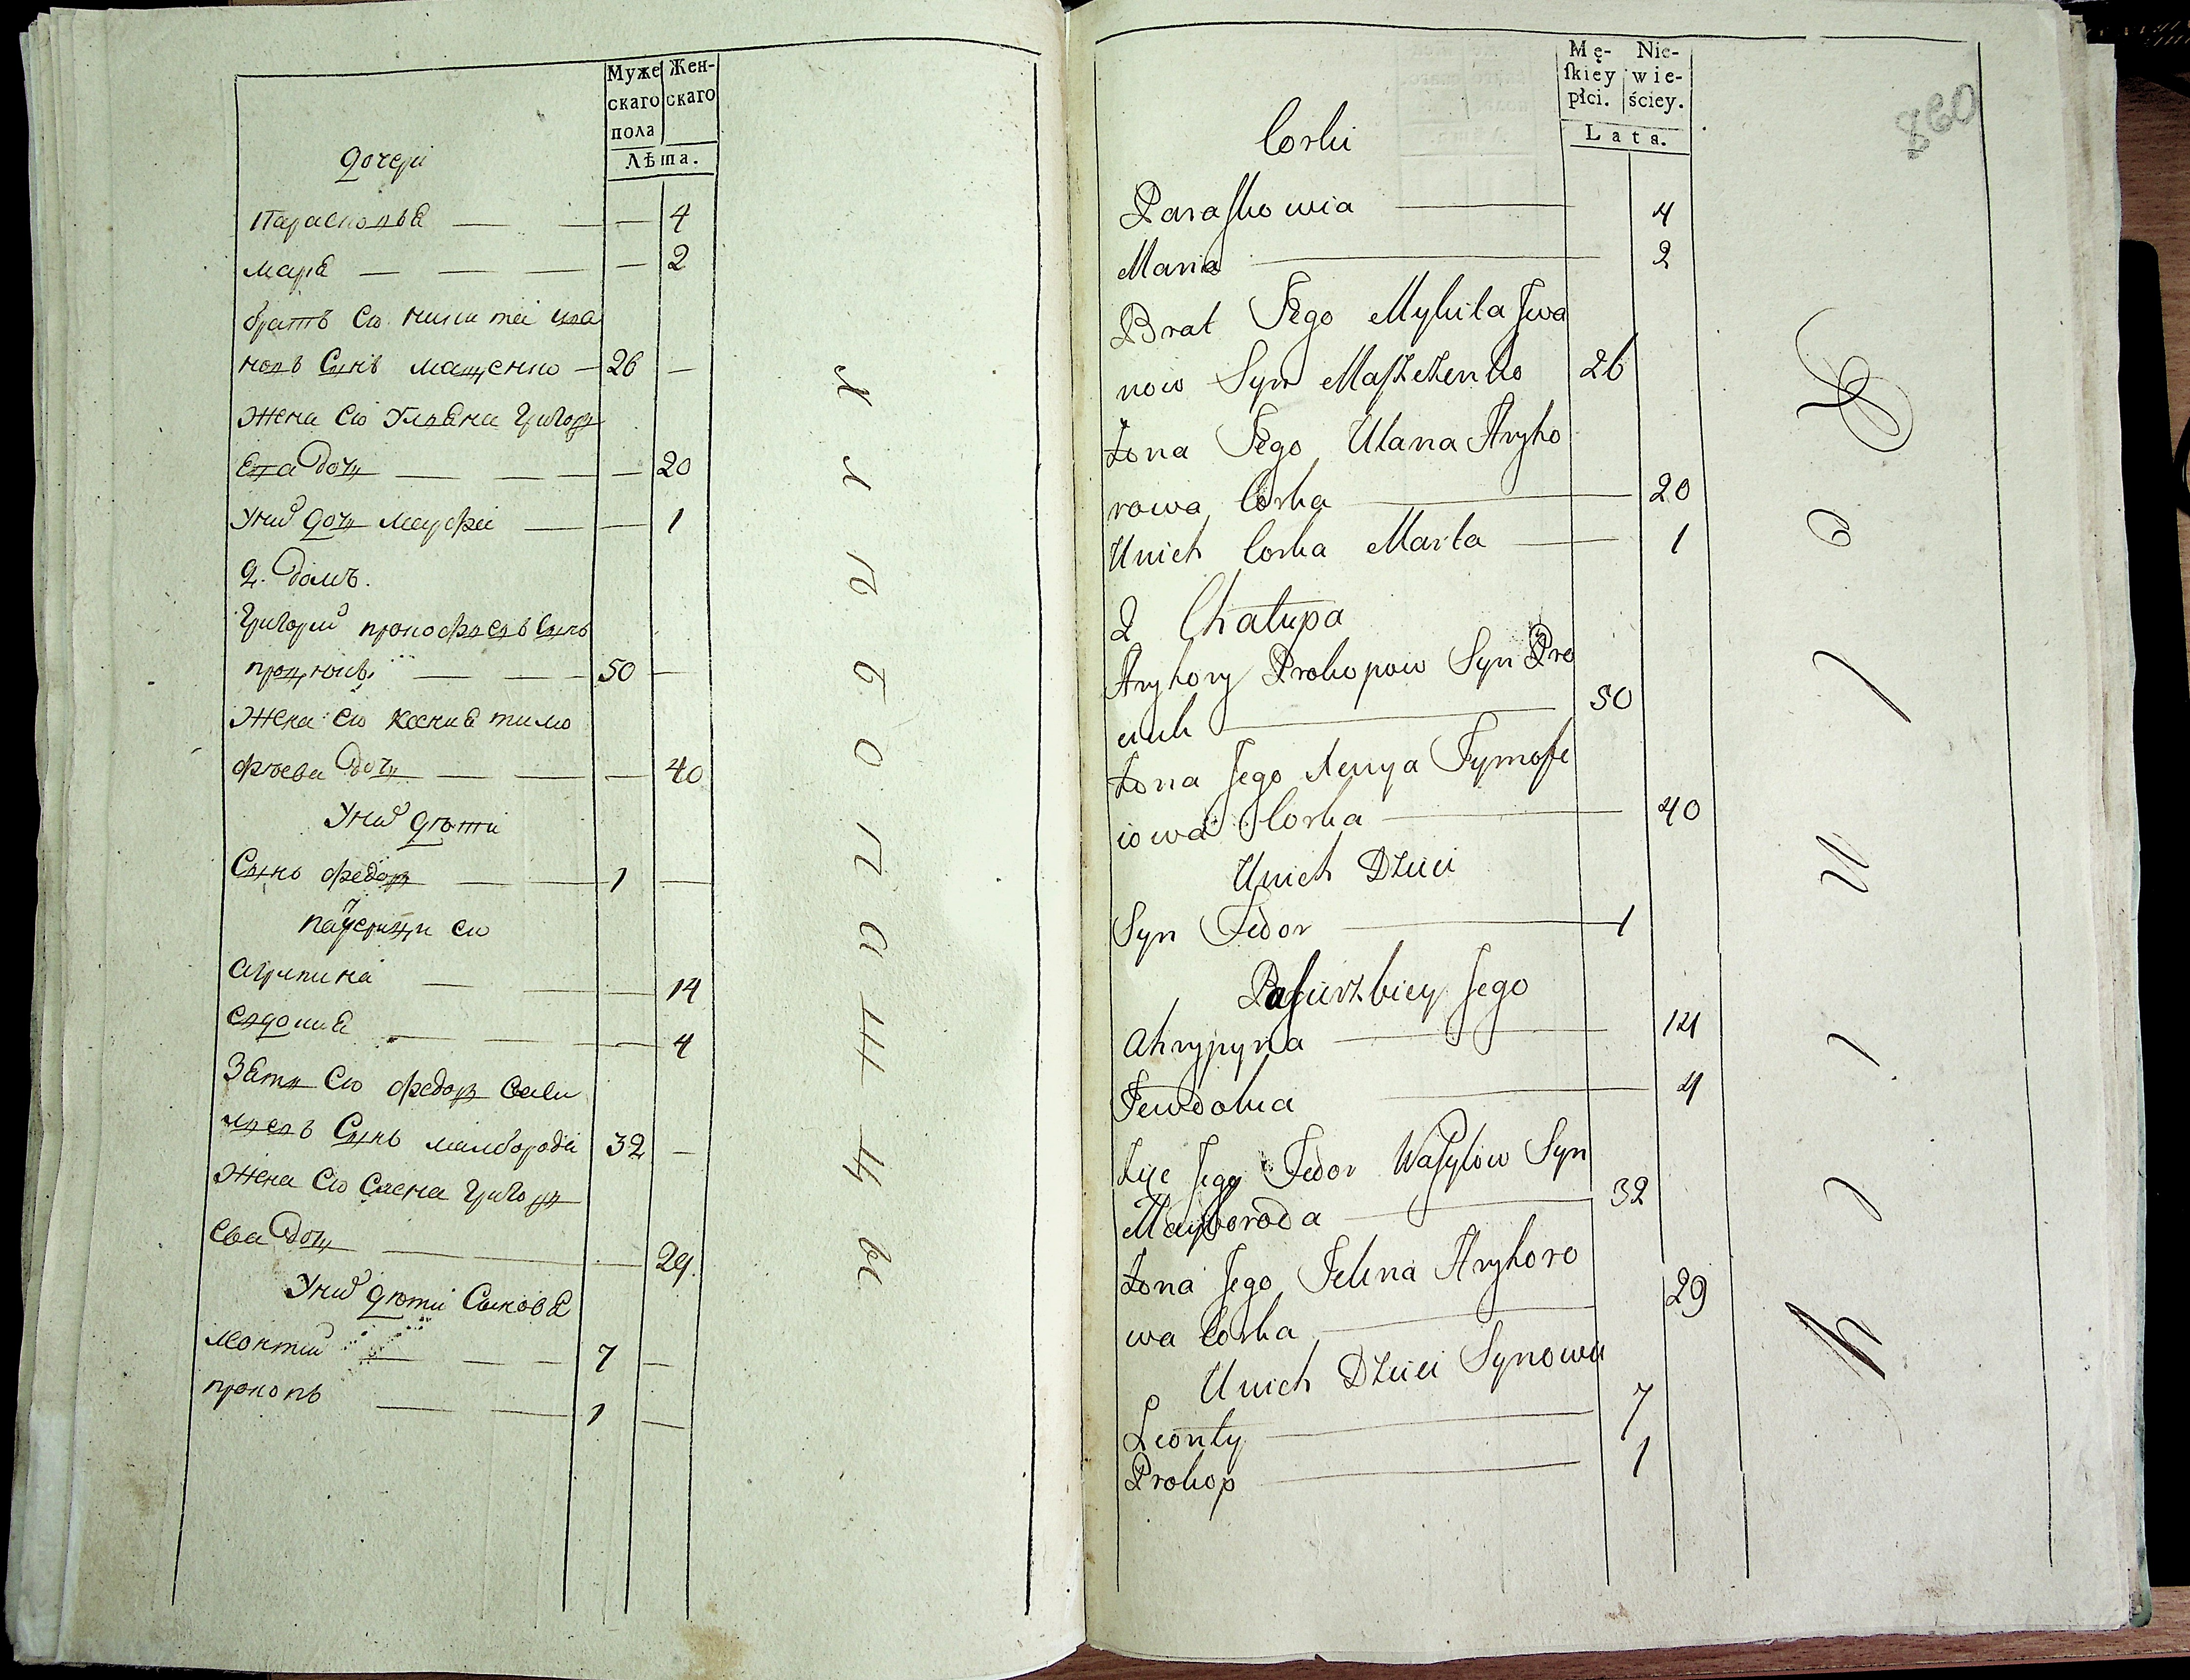 Муже Жен-
скаго скаго
пола
Лѣта.
дочери
Парасковѣя — 4
Маря — 2
братъ Его никита ива
новъ Сынъ Мащенко — 26 —
Жена Его Уляна Григор
Ева дочь — 20
Унихъ дочь Марфа — 1
2. домъ.
Григорий прокофьевъ Сынъ
50 —
Жена Его Ксения тимо
фѣева дочь — 40
Унихъ дѣти
Сынъ федор — 1 —
падчерицы Его
Агрипина — 14
Евдокия — 4
Зять Его федор Васи
лиевъ Сынъ маиборода 32 —
Жена Его Елена Григорь
ева дочь — 29.
Унихъ дѣти Сыновя
Леонтий — 7 —
прокопъ — 1 —
Mę- Nie-
ſkiey wie-
płci. ściey.
Lata.
860
Corki
Paraſkowia — 4
Maria — 2
Brat Jego Mykita Jwa
now Syn Maſzczenko 26
Żona Jego Ulana Hryho
rowa Corka — 20
Unich Corka Marta — 1
2 Chałupa
Hryhory Prokopow Syn Pro
ciuk — 50
Żona Jego Xenya Tymofe
iowa Corka — 40
Unich Dzieci
Syn Fedor — 1
Paſierzbicy Jego
Ahrypyna — 14
Jewdokia — 4
Zięć Jego Fedor Waſylow Syn
Mayboroda — 32
Żona Jego Jelena Hryhoro
wa Corka — 29
Unich Dzieci Synowie
Leonty — 7
Prokop — 1